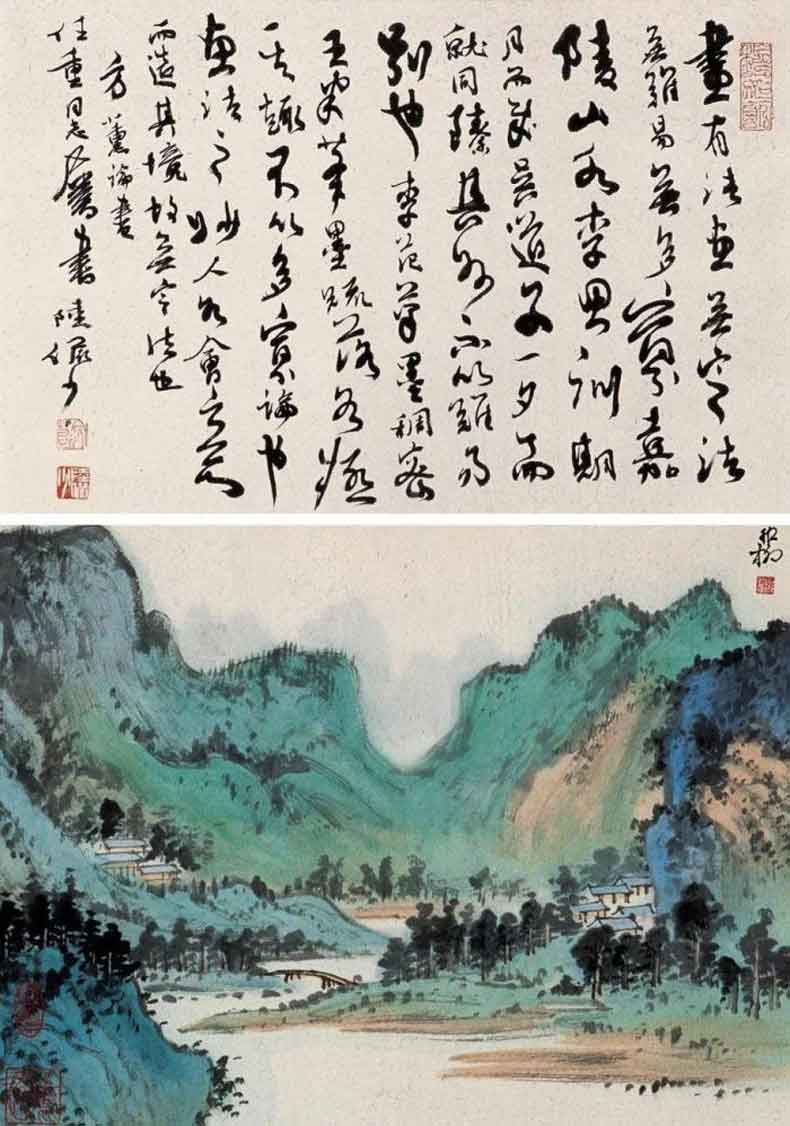 畫有法畫無定法
無難易無多寡嘉
陵山水李思訓期
月而成吳道子一夕而
就同臻其妙不以難易
別也李范筆墨稠密
王米筆墨疏落各極
其趣不以多寡論也
畫法之妙人各會意
而造其境故無定法也
方薰論畫
任重同志屬書陸儼少